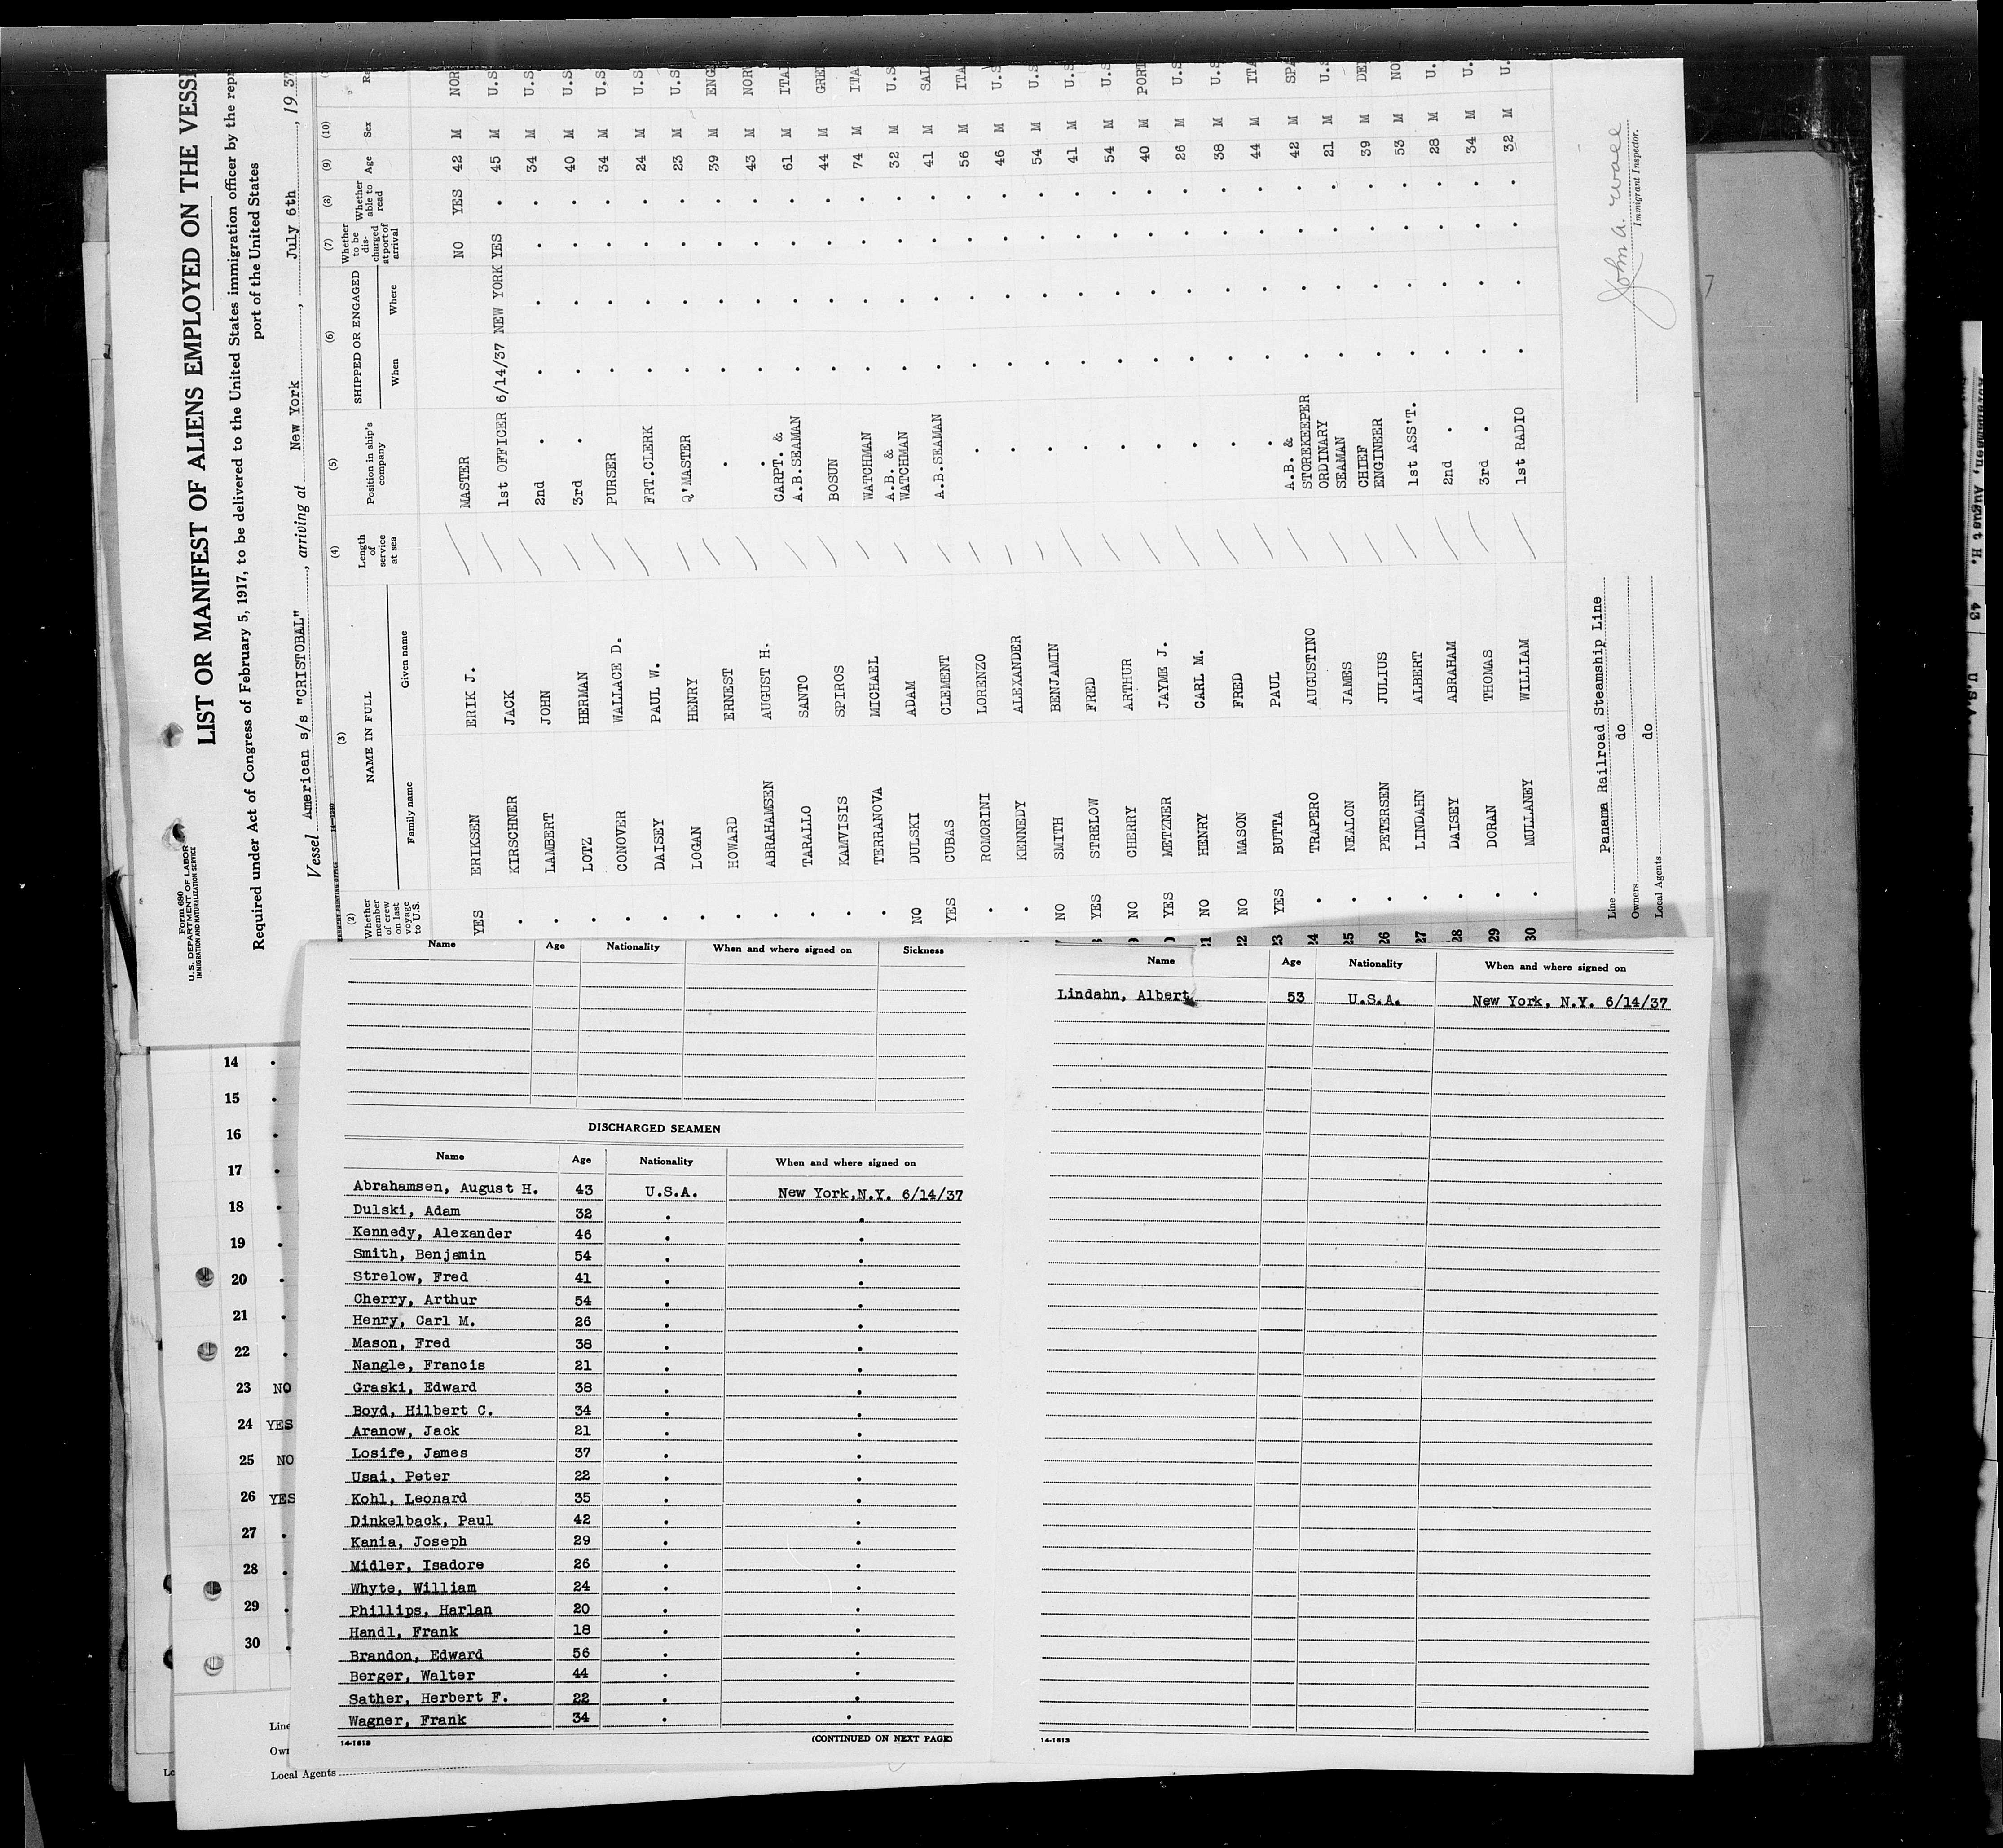 Form 680
U. S. DEPARTMENT OF LABOR
IMMIGRATION AND NATURALIZATION SERVICE
LIST OR MANIFEST OF ALIENS EMPLOYED ON THE VESSE
Required under Act of Congress of February 5, 1917, to be delivered to the United States immigration officer by the repr
port of the United States
Vessel American s/s "CRISTOBAL", arriving at New York, July 6th, 19 37
(2) (3) (4) (5) (6) (7) (8) (9) (10)
Whether member of crew on last voyage to U.S. NAME IN FULL Family name Given name Length of service at sea Position in ship's company SHIPPED OR ENGAGED When Where Whether to be discharged at port of arrival Whether able to read Age Sex
YES ERIKSEN ERIK J. MASTER NO YES 42 M NOR
. KIRSCHNER JACK 1st OFFICER 6/14/37 NEW YORK YES . 45 M U.S
. LAMBERT JOHN 2nd . . . . . 34 M U.S
. LOTZ HERMAN 3rd . . . . . 40 M U.S
. CONOVER WALLACE D. PURSER . . . . 34 M U.S
. DAISEY PAUL W. FRT.CLERK . . . . 24 M U.S
. LOGAN HENRY Q'MASTER . . . . 23 M U.S
. HOWARD ERNEST . . . . . 39 M ENG
. ABRAHAMSEN AUGUST H. . . . . . 43 M NOR
. TARALLO SANTO CARPT. & A.B.SEAMAN . . . . 61 M ITA
. KAMVISIS SPIROS BOSUN . . . . 44 M GRE
. TERRANOVA MICHAEL WATCHMAN . . . . 74 M ITA
NO DULSKI ADAM A.B. & WATCHMAN . . . . 32 M U.S
YES CUBAS CLEMENT A.B.SEAMAN . . . . 41 M SAL
. ROMORINI LORENZO . . . . . 56 M ITA
. KENNEDY ALEXANDER . . . . . 46 M U.S
NO SMITH BENJAMIN . . . . . 54 M U.S
YES STRELOW FRED . . . . . 41 M U.S
NO CHERRY ARTHUR . . . . . 54 M U.S
YES METZNER JAYME J. . . . . . 40 M PORT
21 NO HENRY CARL M. . . . . . 26 M U.S
22 NO MASON FRED . . . . . 38 M U.S
23 YES BUTTA PAUL . . . . . 44 M ITA
24 . TRAPERO AUGUSTINO A.B. & STOREKEEPER . . . . 42 M SPA
25 . NEALON JAMES ORDINARY SEAMAN . . . . 21 M U.S
26 . PETERSEN JULIUS CHIEF ENGINEER . . . . 39 M DEN
27 . LINDAHN ALBERT 1st ASS'T. . . . . 53 M NO
28 . DAISEY ABRAHAM 2nd . . . . . 28 M U.
29 . DORAN THOMAS 3rd . . . . . 34 M U.
30 . MULLANEY WILLIAM 1st RADIO . . . . 32 M U.
Line Panama Railroad Steamship Line
Owners do
Local Agents do
Immigrant Inspector.
Name Age Nationality When and where signed on Sickness
DISCHARGED SEAMEN
Name Age Nationality When and where signed on
Abrahamsen, August H. 43 U.S.A. New York,N.Y. 6/14/37
Dulski, Adam 32 . .
Kennedy, Alexander 46 . .
Smith, Benjamin 54 . .
Strelow, Fred 41 . .
Cherry, Arthur 54 . .
Henry, Carl M. 26 . .
Mason, Fred 38 . .
Nangle, Francis 21 . .
Graski, Edward 38 . .
Boyd, Hilbert C. 34 . .
Aranow, Jack 21 . .
Losife, James 37 . .
Usai, Peter 22 . .
Kohl, Leonard 35 . .
Dinkelback, Paul 42 . .
Kania, Joseph 29 . .
Midler, Isadore 26 . .
Whyte, William 24 . .
Phillips, Harlan 20 . .
Handl, Frank 18 . .
Brandon, Edward 56 . .
Berger, Walter 44 . .
Sather, Herbert F. 22 . .
Wagner, Frank 34 . .
14-1613 (CONTINUED ON NEXT PAGE)
Name Age Nationality When and where signed on
Lindahn, Albert 53 U.S.A. New York, N.Y. 6/14/37
14-1613
14 .
15 .
16 .
17 .
18 .
19 .
20 .
21 .
22 .
23 NO
24 YES
25 NO
26 YES
27 .
28 .
29 .
30 .
Line
Local Agents